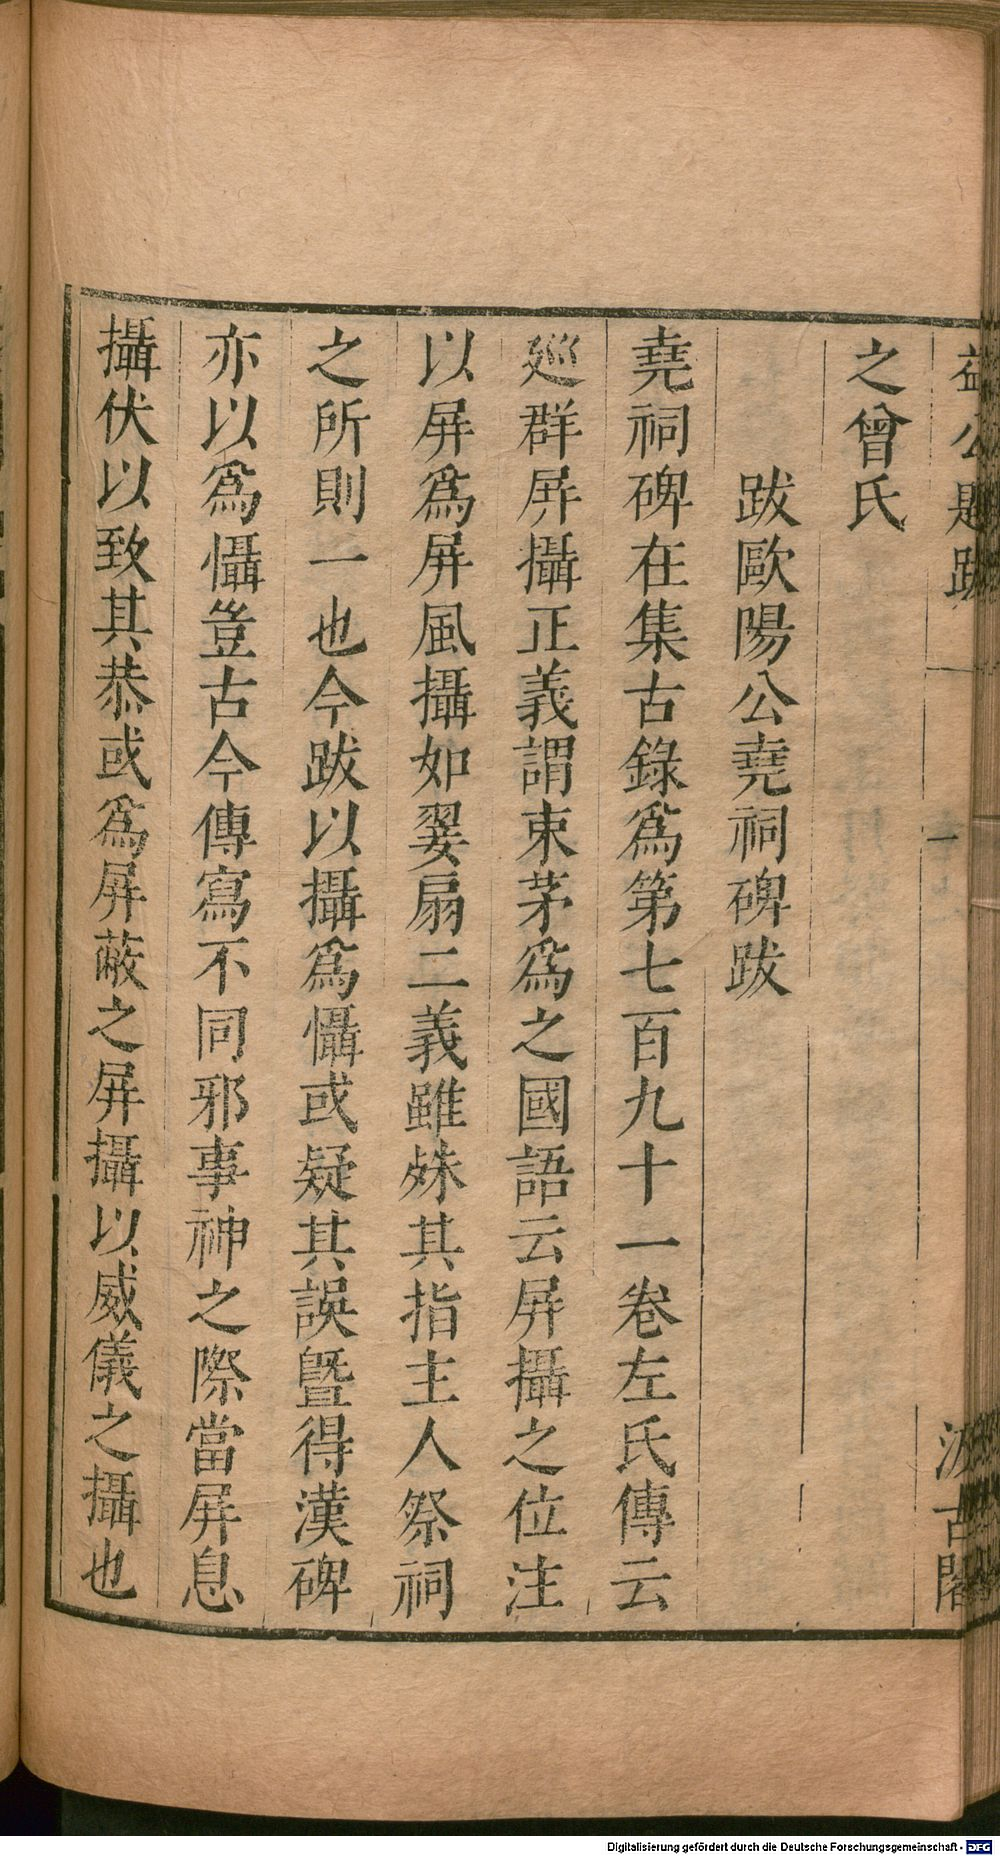 益公題跋
一
汲古閣
之曾氏
跋歐陽公堯祠碑跋
堯祠碑在集古錄爲第七百九十一卷左氏傳云
巡群屏攝正義謂束茅爲之國語云屏攝之位注
以屏爲屏風攝如翣扇二義雖殊其指主人祭祠
之所則一也今跋以攝爲懾或疑其誤曁得漢碑
亦以爲懾豈古今傳寫不同邪事神之際當屏息
攝伏以致其恭或爲屏蔽之屏攝以威儀之攝也
Digitalisierung gefördert durch die Deutsche Forschungsgemeinschaft - DFG